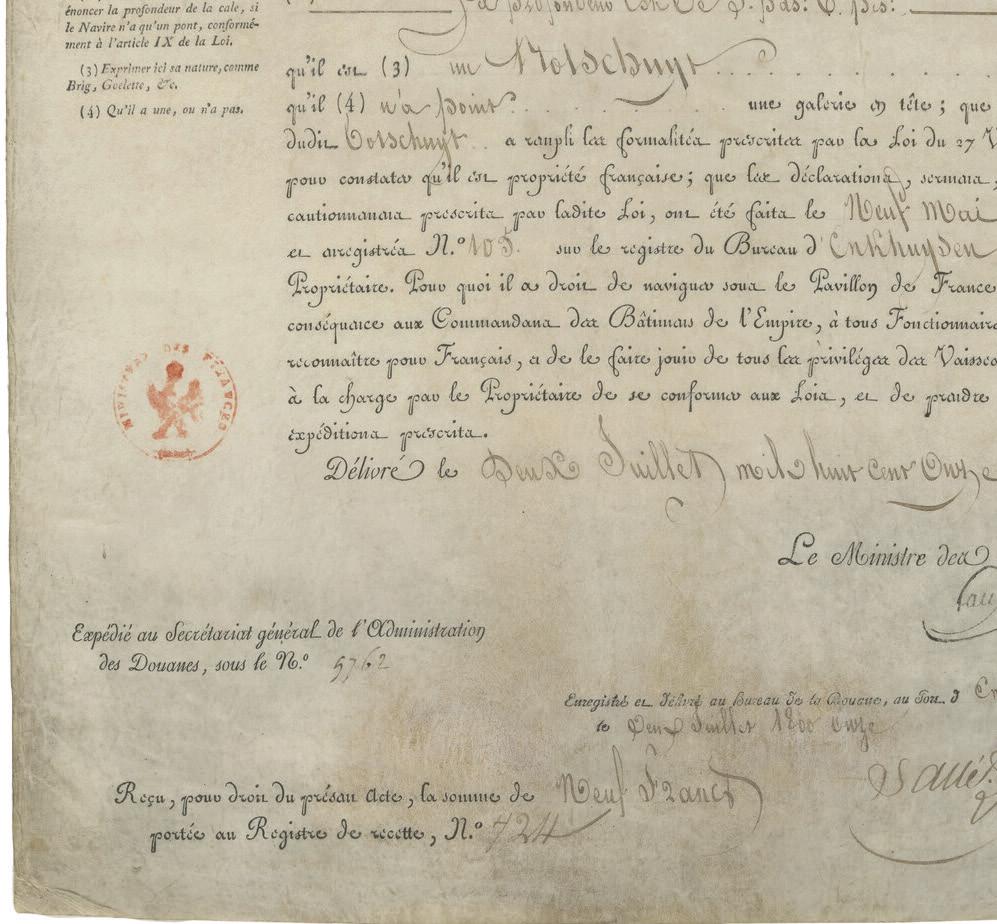 énoncer la profondeur de la cale, si
le Navire n'a qu'un pont, conformé-
ment à l'article IX de la Loi.
(3) Exprimer ici sa nature, comme
Brig, Goelette, &c.
(4) Qu'il a une, ou n'a pas.
qu'il est (3) un
qu'il (4) n'a point une galerie en tête; que
dudit a rempli les formalités prescrites par la Loi du 27 V
pour constater qu'il est propriété française; que les déclarations, sermens,
cautionnemens prescrits par ladite Loi, ont été faits le Neuf Mai
et enregistrés N.º 105 sur le registre du Bureau d'Enkhuysen
Propriétaire. Pour quoi il a droit de naviguer sous le Pavillon de France
conséquence aux Commandans des Bâtimens de l'Empire, à tous Fonctionnaire
reconnaître pour Français, et de le faire jouir de tous les priviléges des Vaissea
à la charge par le Propriétaire de se conformer aux Lois, et de prendre
expéditions prescrites.
Délivré le Deux Juillet mil huit cent Onze
MINISTERE DES FINANCES
Le Ministre des
Expédié au Secrétariat général de l'Administration
des Douanes, sous le N.º 5762
Enregistré et délivré au Bureau de la Douane, au Port d
le Deux Juillet 1800 onze
Reçu, pour droit du présent Acte, la somme de Neuf Francs
portée au Registre de recette, N.º 724